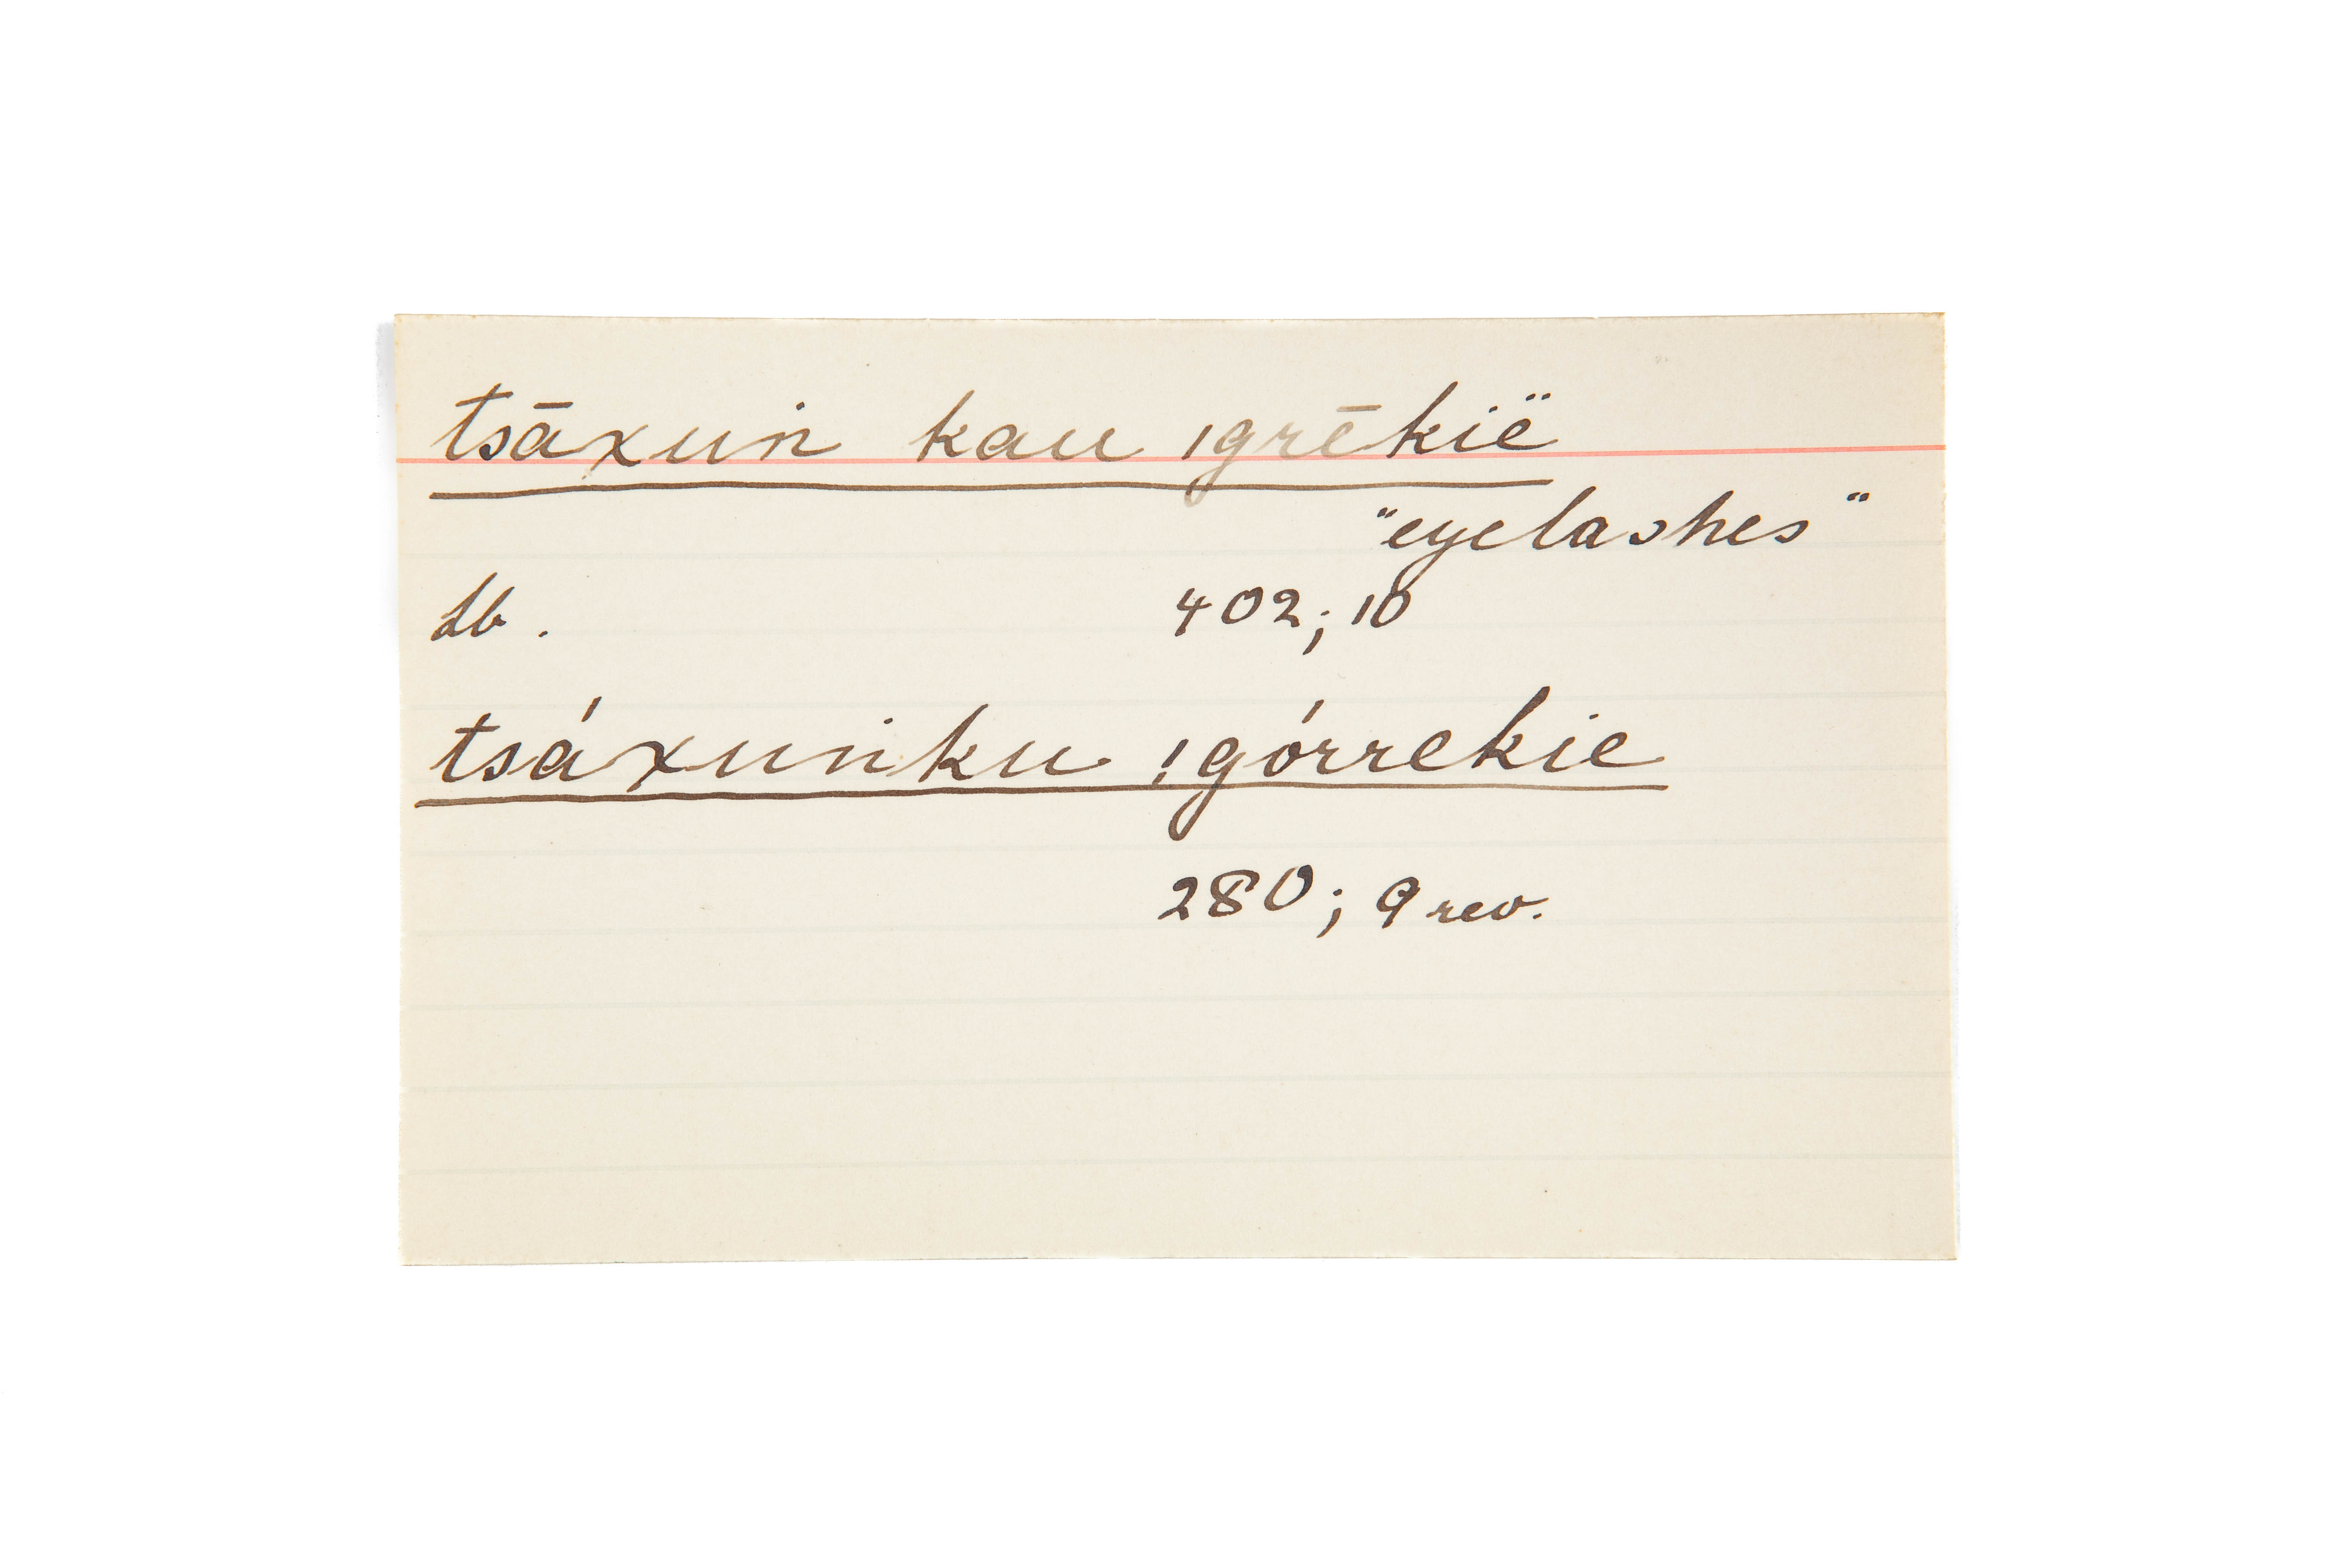 tsāxun kau ǀgrēkië
"eyelashes"
Lb. 402; 10
tsáxunku !górrekie
280; 9 rev.